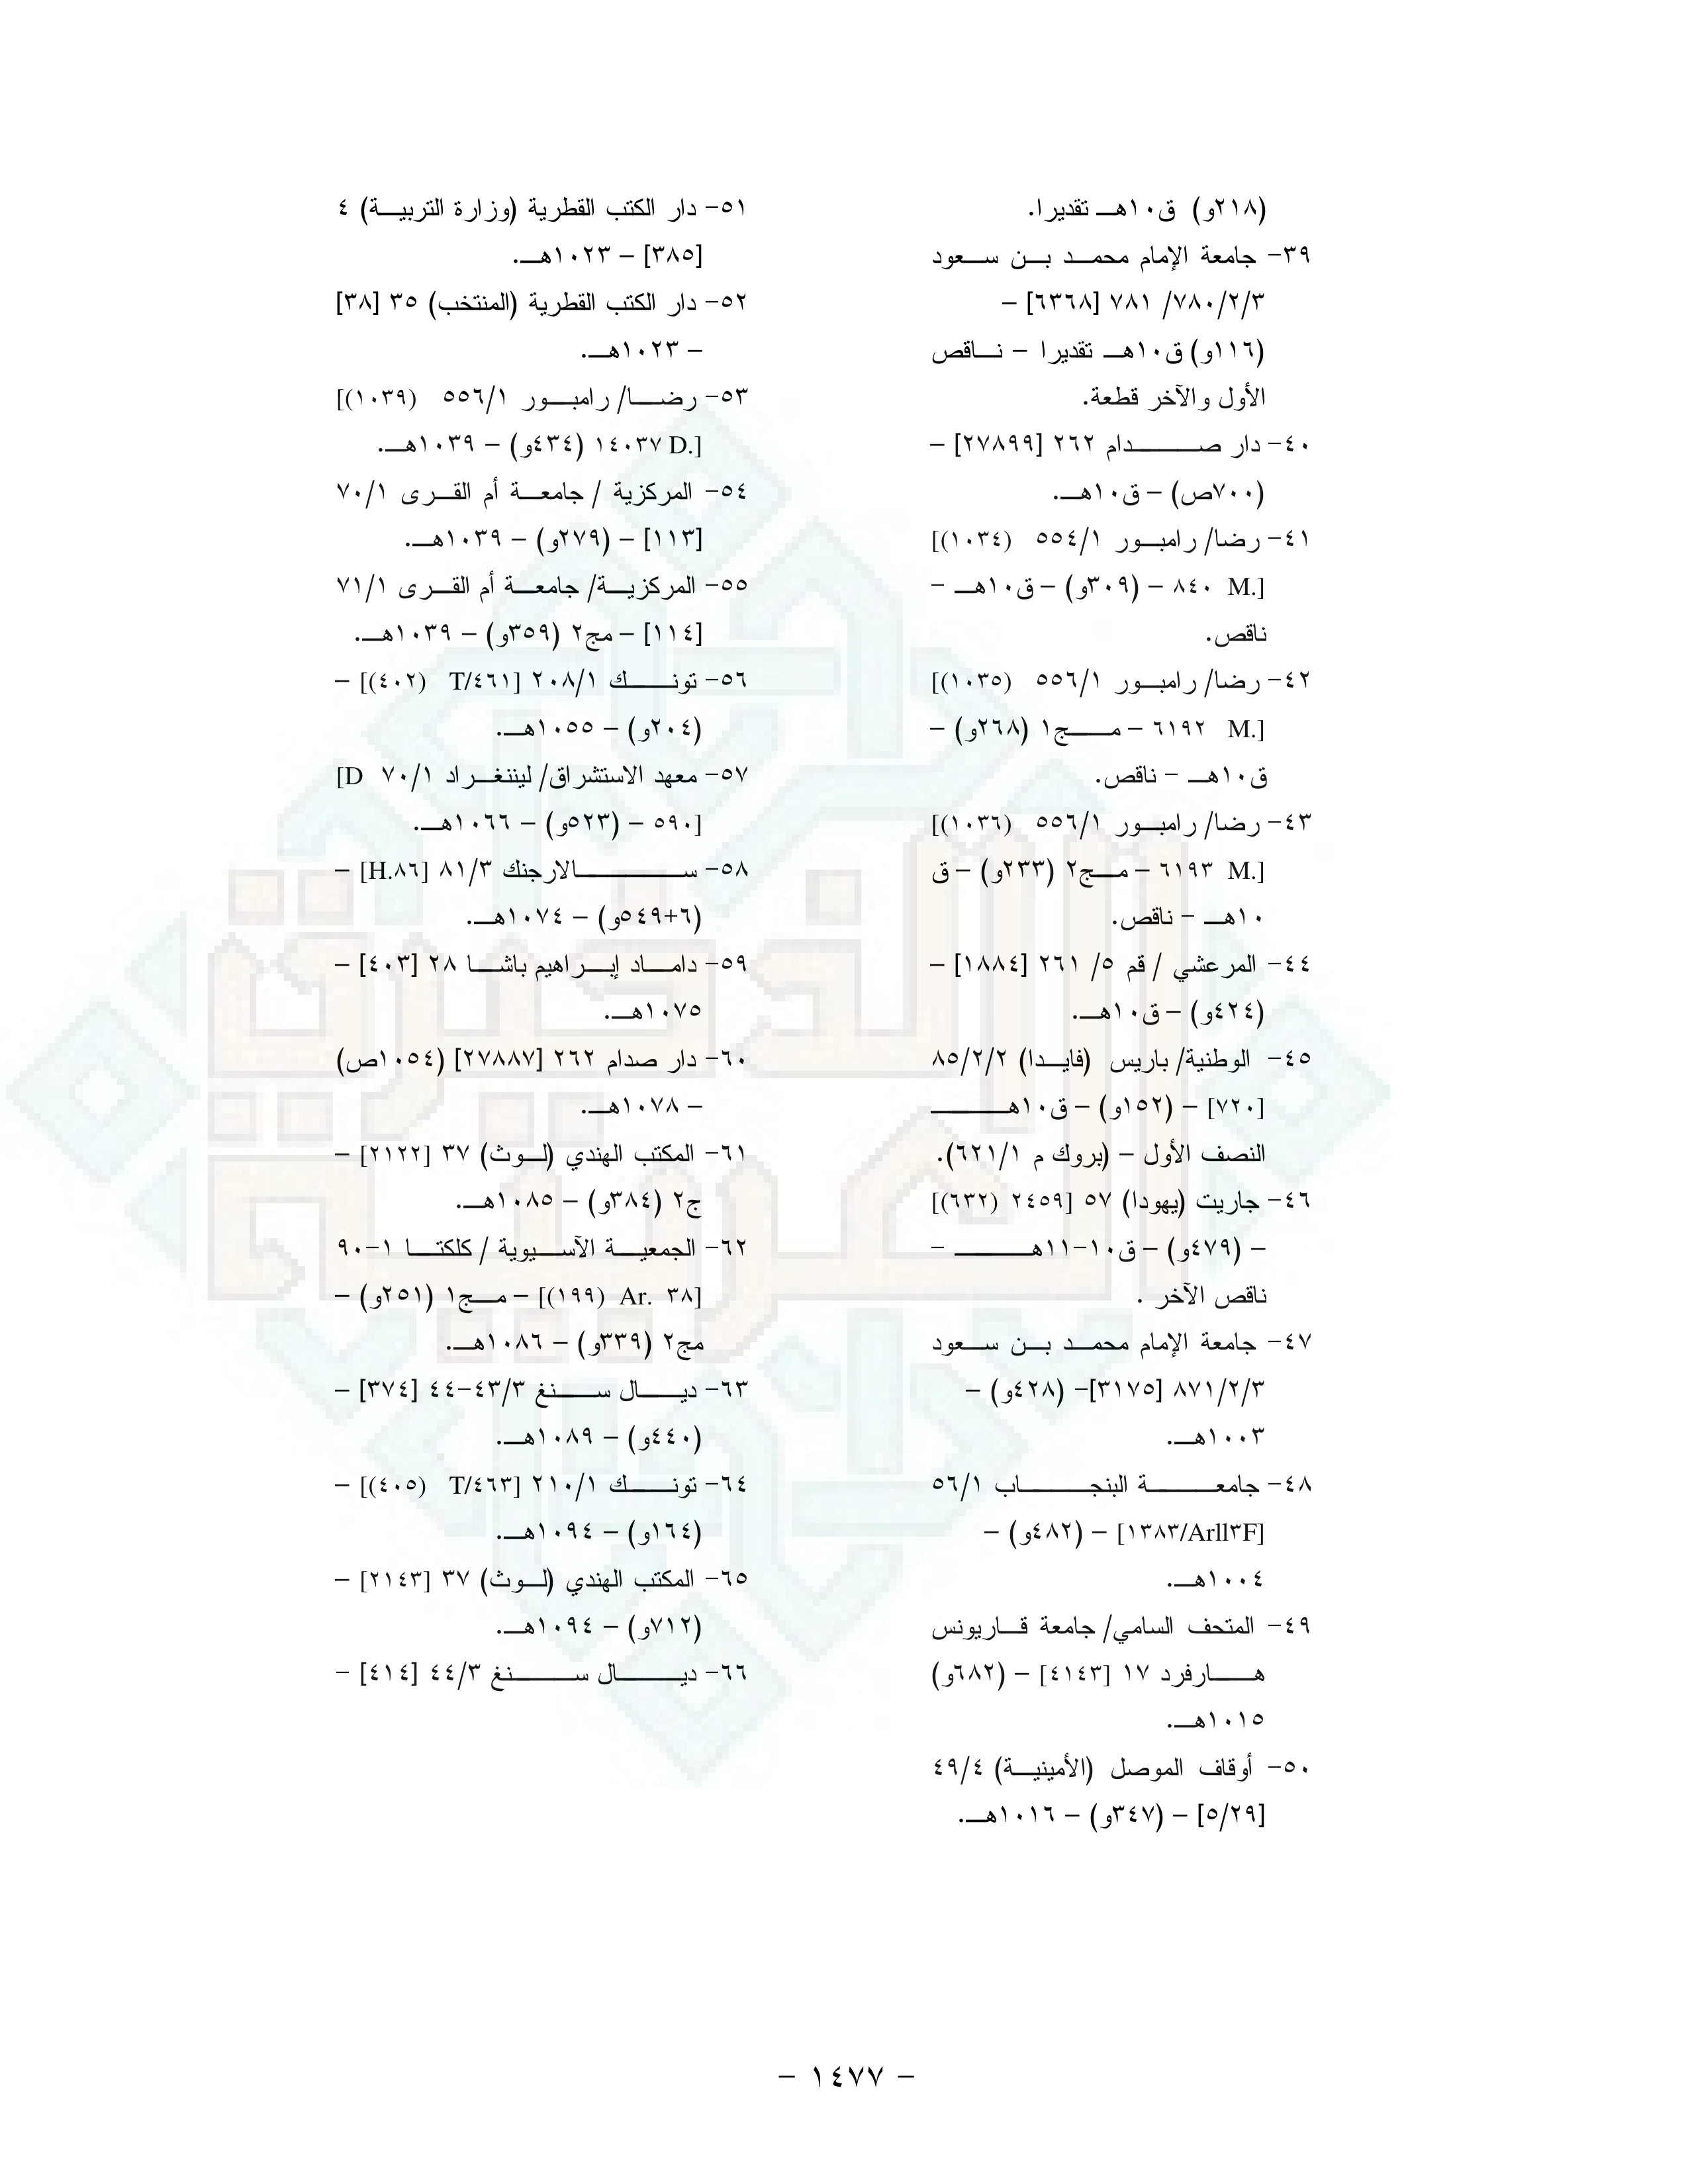 (٢١٨و) ق١٠هـ تقديرا.
٣٩- جامعة الإمام محمد بن سعود
٧٨٠/٢/٣/ ٧٨١ [٦٣٦٨] –
(١١٦و) ق١٠هـ تقديرا – ناقص
الأول والآخر قطعة.
٤٠- دار صدام ٢٦٢ [٢٧٨٩٩] –
(٧٠٠ص) – ق١٠هـ.
٤١- رضا/ رامبور ٥٥٤/١ [(١٠٣٤)
M. ٨٤٠] – (٣٠٩و) – ق١٠هـ -
ناقص.
٤٢- رضا/ رامبور ٥٥٦/١ [(١٠٣٥)
M. ٦١٩٢] – مج١ (٢٦٨و) –
ق١٠هـ – ناقص.
٤٣- رضا/ رامبور ٥٥٦/١ [(١٠٣٦)
M. ٦١٩٣] – مج٢ (٢٣٣و) – ق
١٠هـ – ناقص.
٤٤- المرعشي / قم ٥/ ٢٦١ [١٨٨٤] –
(٤٢٤و) – ق١٠هـ.
٤٥- الوطنية/ باريس (فايدا) ٨٥/٢/٢
[٧٢٠] – (١٥٢و) – ق١٠هـ
النصف الأول – (بروك م ٦٢١/١).
٤٦- جاريت (يهودا) ٥٧ [٢٤٥٩ (٦٣٢)]
– (٤٧٩و) – ق١٠-١١هـ -
ناقص الآخر .
٤٧- جامعة الإمام محمد بن سعود
٨٧١/٢/٣ [٣١٧٥]- (٤٢٨و) –
١٠٠٣هـ.
٤٨- جامعة البنجاب ٥٦/١
[١٣٨٣/Arll٣F] – (٤٨٢و) –
١٠٠٤هـ.
٤٩- المتحف السامي/ جامعة قاريونس
هارفرد ١٧ [٤١٤٣] – (٦٨٢و)
١٠١٥هـ.
٥٠- أوقاف الموصل (الأمينية) ٤٩/٤
[٥/٢٩] – (٣٤٧و) – ١٠١٦هـ.
٥١- دار الكتب القطرية (وزارة التربية) ٤
[٣٨٥] – ١٠٢٣هـ.
٥٢- دار الكتب القطرية (المنتخب) ٣٥ [٣٨]
– ١٠٢٣هـ.
٥٣- رضا/ رامبور ٥٥٦/١ [(١٠٣٩)
D. ١٤٠٣٧] (٤٣٤و) – ١٠٣٩هـ.
٥٤- المركزية / جامعة أم القرى ٧٠/١
[١١٣] – (٢٧٩و) – ١٠٣٩هـ.
٥٥- المركزية/ جامعة أم القرى ٧١/١
[١١٤] – مج٢ (٣٥٩و) – ١٠٣٩هـ.
٥٦- تونك ٢٠٨/١ [T/٤٦١ (٤٠٢)] –
(٢٠٤و) – ١٠٥٥هـ.
٥٧- معهد الاستشراق/ ليننغراد ٧٠/١ [D
٥٩٠] – (٥٢٣و) – ١٠٦٦هـ.
٥٨- سالارجنك ٨١/٣ [H.٨٦] –
(٦+٥٤٩و) – ١٠٧٤هـ.
٥٩- داماد إبراهيم باشا ٢٨ [٤٠٣] –
١٠٧٥هـ.
٦٠- دار صدام ٢٦٢ [٢٧٨٨٧] (١٠٥٤ص)
– ١٠٧٨هـ.
٦١- المكتب الهندي (لوث) ٣٧ [٢١٢٢] –
ج٢ (٣٨٤و) – ١٠٨٥هـ.
٦٢- الجمعية الآسيوية / كلكتا ١-٩٠
[Ar. ٣٨ (١٩٩)] – مج١ (٢٥١و) –
مج٢ (٣٣٩و) – ١٠٨٦هـ.
٦٣- ديال سنغ ٤٣/٣-٤٤ [٣٧٤] –
(٤٤٠و) – ١٠٨٩هـ.
٦٤- تونك ٢١٠/١ [T/٤٦٣ (٤٠٥)] –
(١٦٤و) – ١٠٩٤هـ.
٦٥- المكتب الهندي (لوث) ٣٧ [٢١٤٣] –
(٧١٢و) – ١٠٩٤هـ.
٦٦- ديال سنغ ٤٤/٣ [٤١٤] -
– ١٤٧٧ –